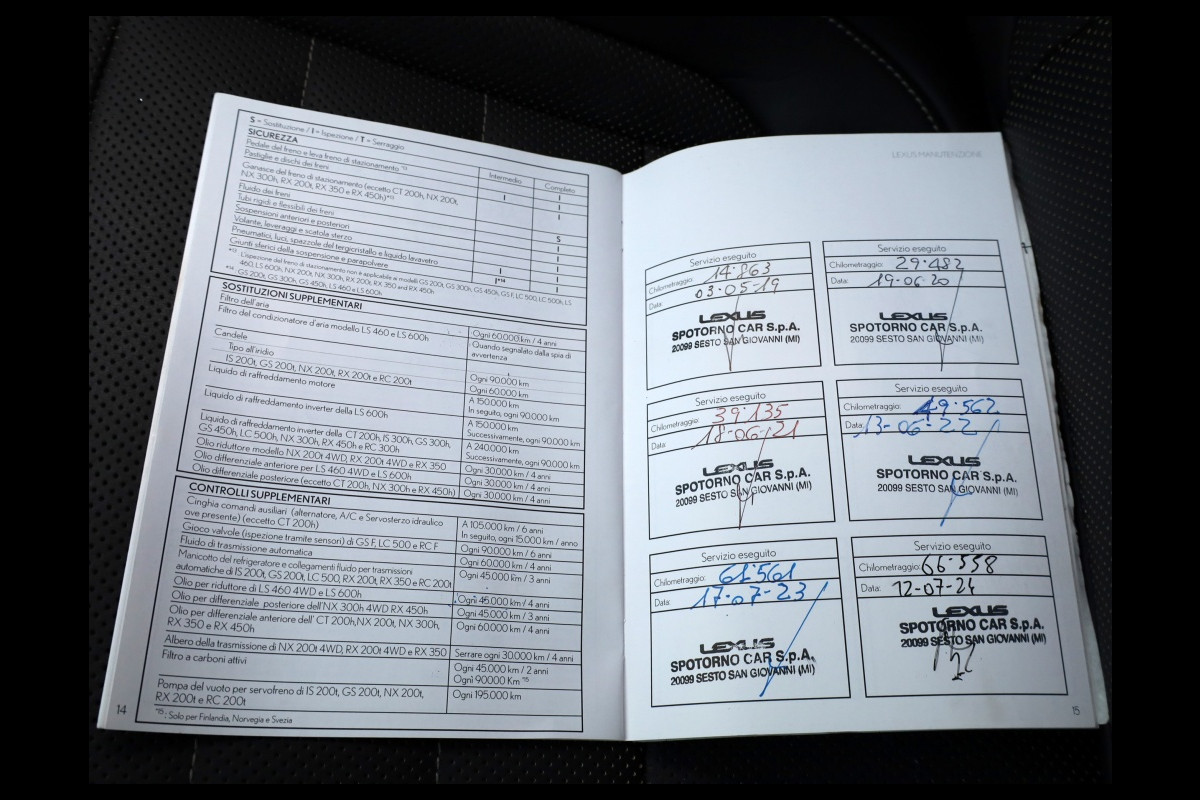 S = Sostituzione / I = Ispezione / T = Serraggio
SICUREZZA
Intermedio Completo
Pedale del freno e leva freno di stazionamento *13
Pastiglie e dischi dei freni
Ganasce del freno di stazionamento (eccetto CT 200h, NX 200t,
NX 300h, RX 200t, RX 350 e RX 450h)*13
Fluido dei freni
Tubi rigidi e flessibili dei freni
Sospensioni anteriori e posteriori
Volante, leveraggi e scatola sterzo
Pneumatici, luci, spazzole del tergicristallo e liquido lavavetro
Giunti sferici della sospensione e parapolvere
*13 L'ispezione del freno di stazionamento non è applicabile ai modelli GS 200t, GS 300h, GS 450h, GS F, LC 500, LC 500h, LS
460, LS 600h, NX 200t, NX 300h, RX 200t, RX 350 and RX 450h
*14 GS 200t, GS 300h, GS 450h, LS 460 e LS 600h
SOSTITUZIONI SUPPLEMENTARI
Filtro dell'aria Ogni 60.000 km / 4 anni
Filtro del condizionatore d'aria modello LS 460 e LS 600h Quando segnalato dalla spia di
avvertenza
Candele
Tipo all'iridio Ogni 90.000 km
IS 200t, GS 200t, NX 200t, RX 200t e RC 200t Ogni 60.000 km
Liquido di raffreddamento motore A 150.000 km
In seguito, ogni 90.000 km
Liquido di raffreddamento inverter della LS 600h A 150.000 km
Successivamente, ogni 90.000 km
Liquido di raffreddamento inverter della CT 200h, IS 300h, GS 300h,
GS 450h, LC 500h, NX 300h, RX 450h e RC 300h A 240.000 km
Successivamente, ogni 90.000 km
Olio riduttore modello NX 200t 4WD, RX 200t 4WD e RX 350 Ogni 30.000 km / 4 anni
Olio differenziale anteriore per LS 460 4WD e LS 600h Ogni 30.000 km / 4 anni
Olio differenziale posteriore (eccetto CT 200h, NX 300h e RX 450h) Ogni 30.000 km / 4 anni
CONTROLLI SUPPLEMENTARI
Cinghia comandi ausiliari (alternatore, A/C e Servosterzo idraulico
ove presente) (eccetto CT 200h) A 105.000 km / 6 anni
In seguito, ogni 15.000 km / anno
Gioco valvole (ispezione tramite sensori) di GS F, LC 500 e RC F Ogni 90.000 km / 6 anni
Fluido di trasmissione automatica Ogni 60.000 km / 4 anni
Manicotto del refrigeratore e collegamenti fluido per trasmissioni
automatiche di IS 200t, GS 200t, LC 500, RX 200t, RX 350 e RC 200t Ogni 45.000 km / 3 anni
Olio per riduttore di LS 460 4WD e LS 600h Ogni 45.000 km / 4 anni
Olio per differenziale posteriore dell'NX 300h 4WD RX 450h Ogni 45.000 km / 3 anni
Olio per differenziale anteriore dell' CT 200h, NX 200t, NX 300h,
RX 350 e RX 450h Ogni 60.000 km / 4 anni
Albero della trasmissione di NX 200t 4WD, RX 200t 4WD e RX 350 Serrare ogni 30.000 km / 4 anni
Filtro a carboni attivi Ogni 45.000 km / 2 anni
Ogni 90000 Km *15
Pompa del vuoto per servofreno di IS 200t, GS 200t, NX 200t,
RX 200t e RC 200t Ogni 195.000 km
*15 : Solo per Finlandia, Norvegia e Svezia
14
LEXUS MANUTENZIONE
Servizio eseguito
Chilometraggio: 14.863
Data: 03-05-19
LEXUS
SPOTORNO CAR S.p.A.
20099 SESTO SAN GIOVANNI (MI)
Servizio eseguito
Chilometraggio: 29.482
Data: 19-06-20
LEXUS
SPOTORNO CAR S.p.A.
20099 SESTO SAN GIOVANNI (MI)
Servizio eseguito
Chilometraggio: 39.135
Data: 18-06-21
LEXUS
SPOTORNO CAR S.p.A.
20099 SESTO SAN GIOVANNI (MI)
Servizio eseguito
Chilometraggio: 49.562
Data: 13-06-22
LEXUS
SPOTORNO CAR S.p.A.
20099 SESTO SAN GIOVANNI (MI)
Servizio eseguito
Chilometraggio: 61.561
Data: 17-07-23
LEXUS
SPOTORNO CAR S.p.A.
20099 SESTO SAN GIOVANNI (MI)
Servizio eseguito
Chilometraggio: 66.558
Data: 12-07-24
LEXUS
SPOTORNO CAR S.p.A.
20099 SESTO SAN GIOVANNI (MI)
15